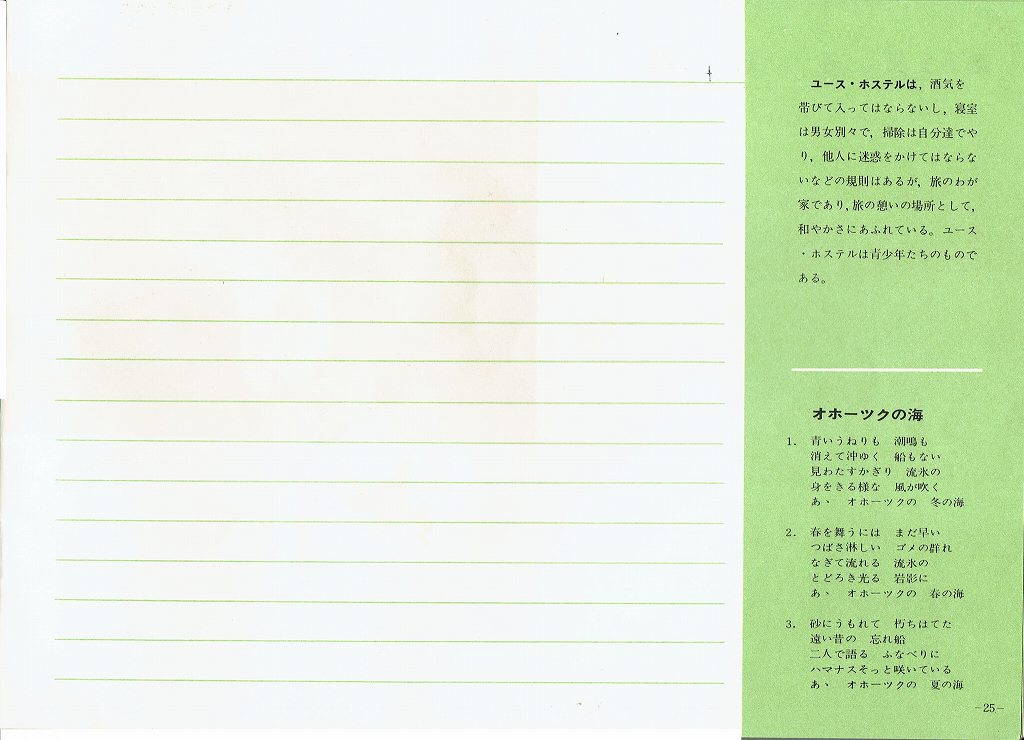 ユース・ホステルは，酒気を
帯びて入ってはならないし，寝室
は男女別々で，掃除は自分達でや
り，他人に迷惑をかけてはならな
いなどの規則はあるが，旅のわが
家であり，旅の憩いの場所として，
和やかさにあふれている。ユース
・ホステルは青少年たちのもので
ある。
オホーツクの海
1． 青いうねりも　潮鳴も
消えて沖ゆく　船もない
見わたすかぎり　流氷の
身をきる様な　風が吹く
あゝ　オホーツクの　冬の海
2． 春を舞うには　まだ早い
つばさ淋しい　ゴメの群れ
なぎて流れる　流氷の
とどろき光る　岩影に
あゝ　オホーツクの　春の海
3． 砂にうもれて　朽ちはてた
遠い昔の　忘れ船
二人で語る　ふなべりに
ハマナスそっと咲いている
あゝ　オホーツクの　夏の海
−25−